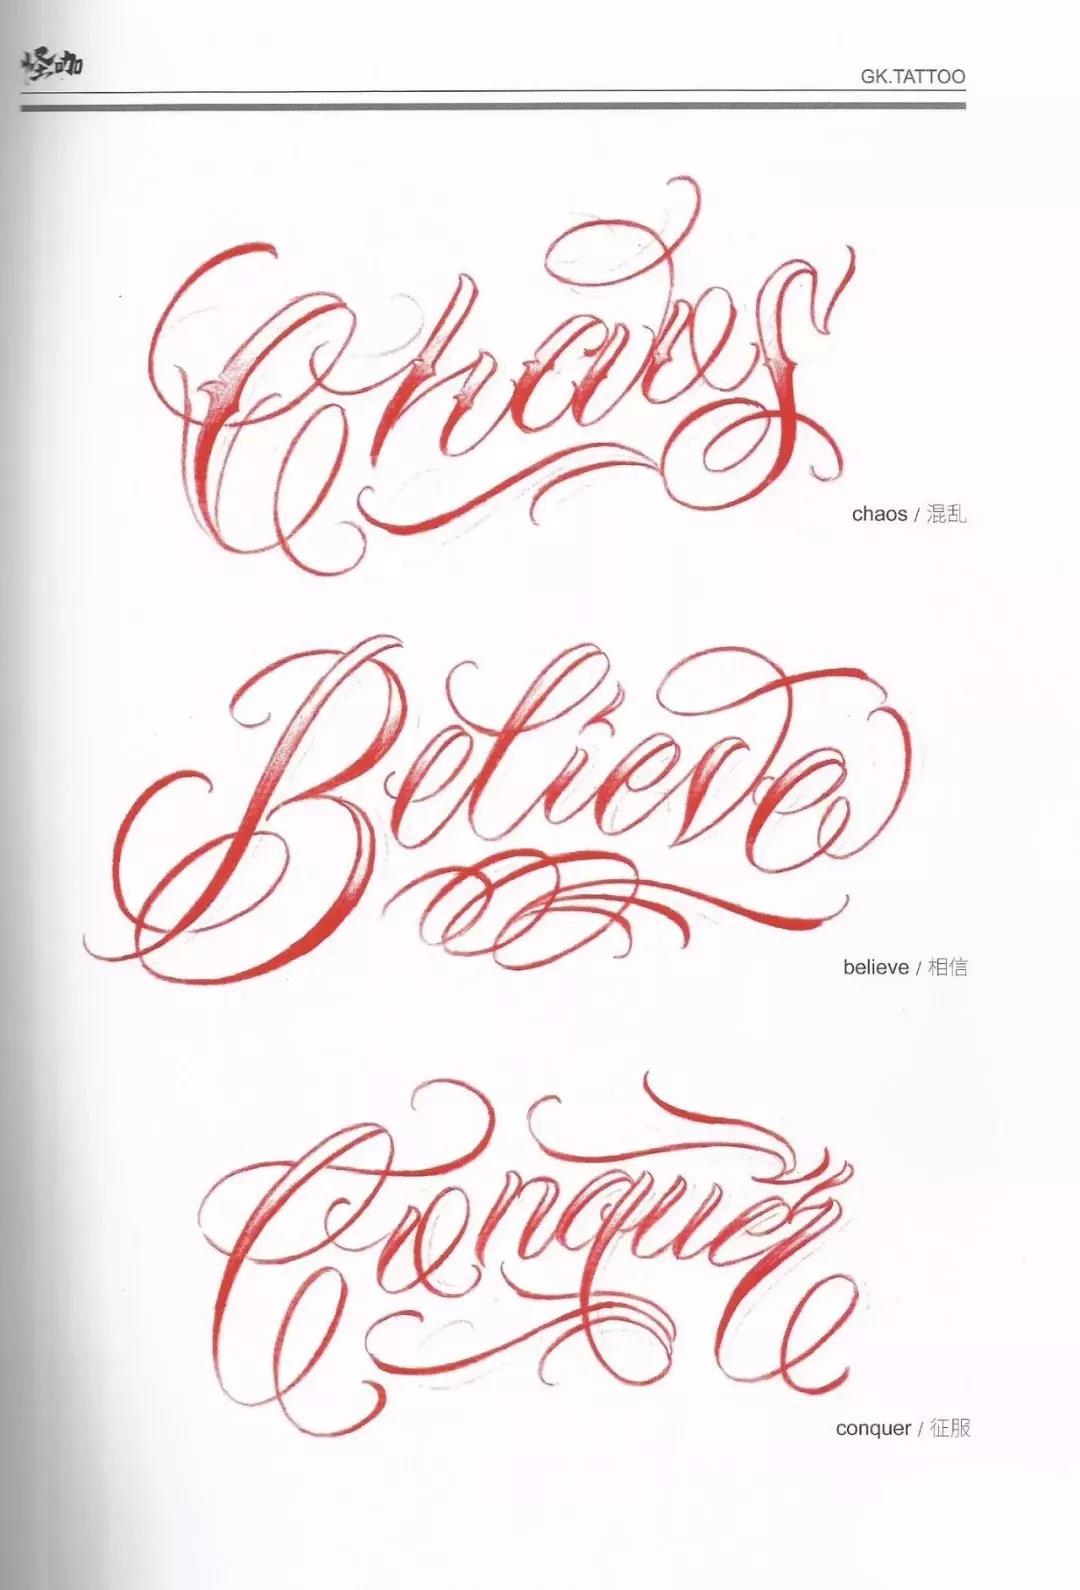 怪咖
GK.TATTOO
Chaos
chaos / 混乱
Believe
believe / 相信
Conquer
conquer / 征服